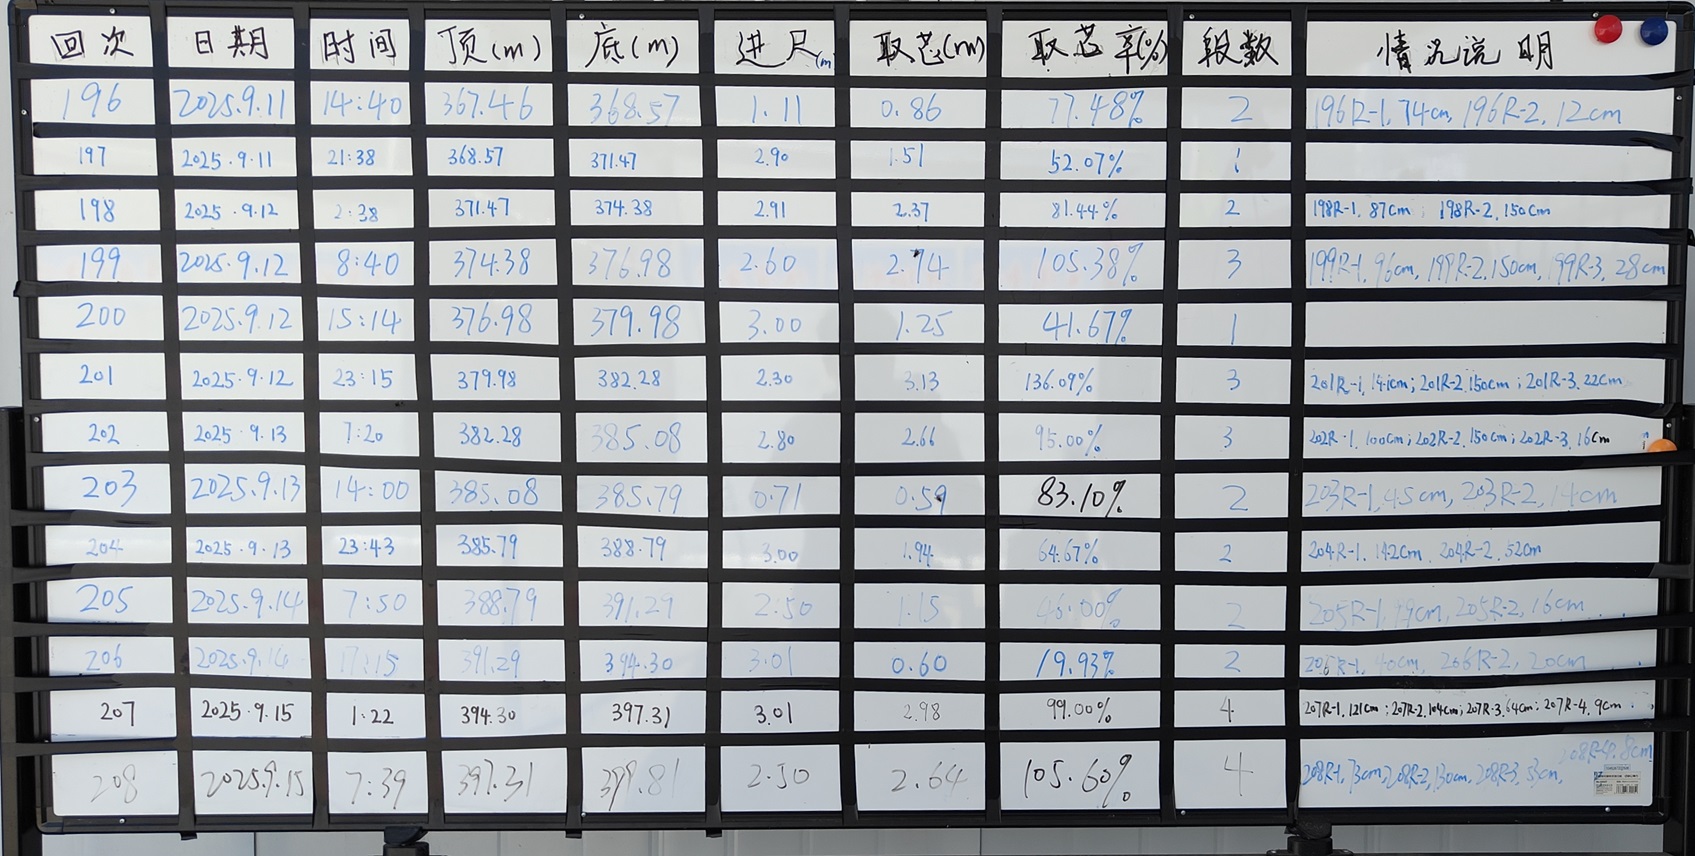 回次 日期 时间 顶(m) 底(m) 进尺(m) 取芯(m) 取芯率(%) 段数 情况说明
196 2025.9.11 14:40 367.46 368.57 1.11 0.86 77.48% 2 196R-1, 74cm, 196R-2, 12cm
197 2025.9.11 21:38 368.57 371.47 2.90 1.51 52.07% 1
198 2025.9.12 2:38 371.47 374.38 2.91 2.37 81.44% 2 198R-1, 87cm; 198R-2, 150cm
199 2025.9.12 8:40 374.38 376.98 2.60 2.74 105.38% 3 199R-1, 96cm, 199R-2, 150cm, 199R-3, 28cm
200 2025.9.12 15:14 376.98 379.98 3.00 1.25 41.67% 1
201 2025.9.12 23:15 379.98 382.28 2.30 3.13 136.09% 3 201R-1, 141cm; 201R-2, 150cm; 201R-3, 22cm
202 2025.9.13 7:20 382.28 385.08 2.80 2.66 95.00% 3 202R-1, 100cm; 202R-2, 150cm; 202R-3, 16cm
203 2025.9.13 14:00 385.08 385.79 0.71 0.59 83.10% 2 203R-1, 45cm, 203R-2, 14cm
204 2025.9.13 23:43 385.79 388.79 3.00 1.94 64.67% 2 204R-1, 142cm, 204R-2, 52cm
205 2025.9.14 7:50 388.79 391.29 2.50 1.15 46.00% 2 205R-1, 99cm, 205R-2, 16cm
206 2025.9.14 17:15 391.29 394.30 3.01 0.60 19.93% 2 206R-1, 40cm, 206R-2, 20cm
207 2025.9.15 1:22 394.30 397.31 3.01 2.98 99.00% 4 207R-1, 121cm; 207R-2, 104cm; 207R-3, 64cm; 207R-4, 9cm
208 2025.9.15 7:39 397.31 399.81 2.50 2.64 105.60% 4 208R-1, 73cm, 208R-2, 130cm, 208R-3, 53cm, 208R-4, 8cm